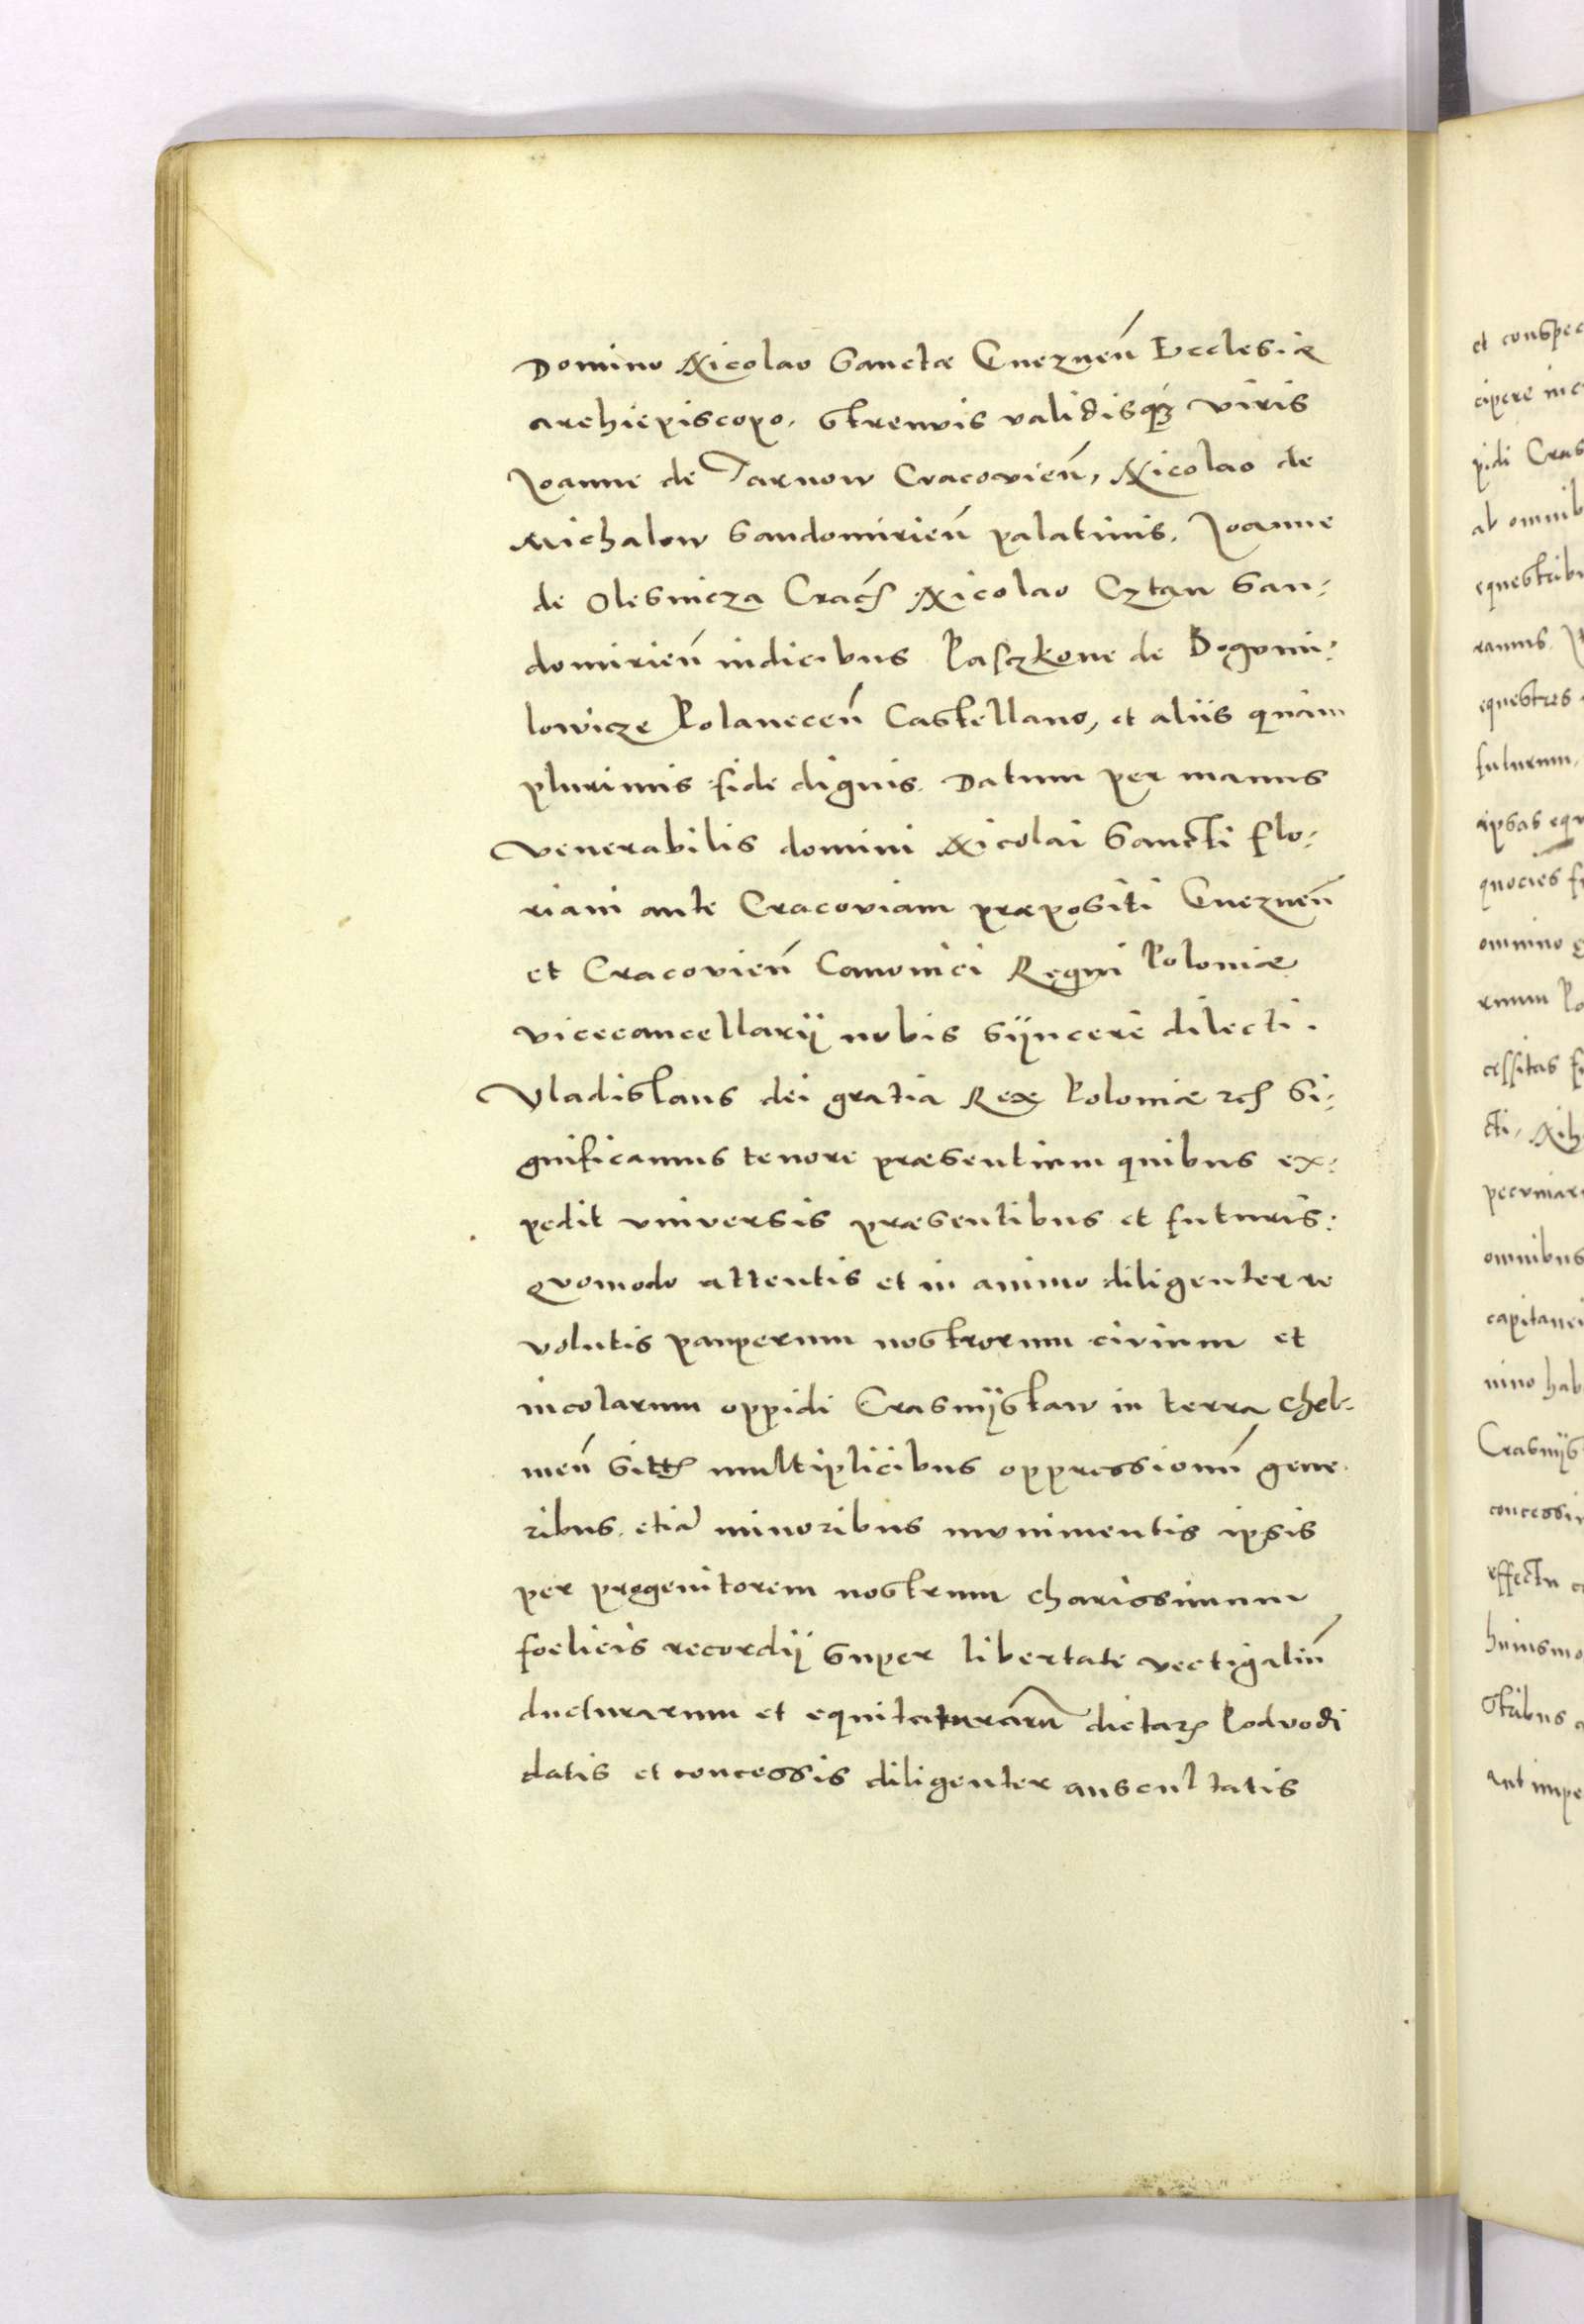 Domino Nicolao Sanctæ Gneznen̄ Ecclesiæ
archiepiscopo, Strenvis validisqꝫ viris
Joanne de Tarnow Cracovien̄, Nicolao de
Michalow Sandomirien̄ palatinis, Joanne
de Olesnicza Crac̄ Nicolao Cztan San:
domirien̄ iudicibus Pasczkone de Bogvmi:
lowicze Polanecen̄ Castellano, et aliis quam
plurimis fide dignis. Datum per manus
venerabilis domini Nicolai Sancti flo:
riani ante Cracoviam præpositi Gneznen̄
et Cracovien̄ Canonici Regni Poloniæ
vicecancellarij nobis sijncere dilecti.
Vladislaus dei gratia Rex Poloniæ etc̄ Si:
gnificamus tenore præsentium quibus ex:
pedit vniversis præsentibus et futuris:
qvomodo attentis et in animo diligenter re
volutis pauperum nostrorum civium et
incolarum oppidi Crasnijstaw in terra chel:
men̄ sitt̄ multiplicibus oppressionū gene
ribus, etiā minoribus mvnimentis ipsis
per progenitorem nostrum charissimum
foelicis recordij super libertate vectigaliū
ducturarum et equitaturarū dictaꝝ Podvodi
datis et concessis diligenter auscultatis
et conspec
cipere inc
pidi Cras
ab omnib
equestrib
ramus.
equestres
futurum,
ipsas eqv
quocies f
omnino
rnum Po
cessitas f
cti, Nih
pecvniar
omnibus
capitanei
nino hab
Crasnijs
concessi
effectu c
huiusmo
stribus
aut impe